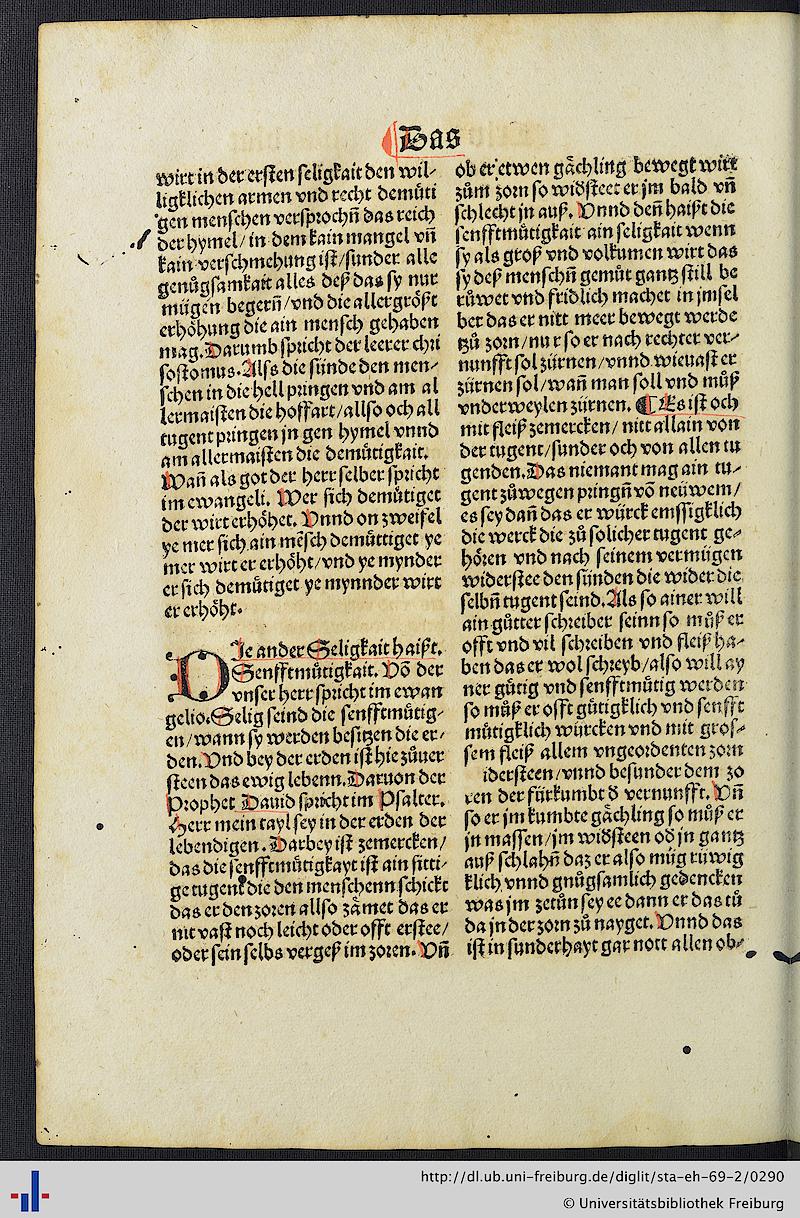 Das
wirt in der ersten seligkait den wil-
ligklichen armen vnd recht demüti
gen menschen versprochñ das reich
der hymel / in dem kain mangel vñ
kain verschmehung ist / sunder alle
genůgsamkait alles deß das sy nur
mügen begerñ / vnd die allergröst
erhöhung die ain mensch gehaben
mag. Darumb spricht der leerer chri
sostomus. Alss die sünde den men-
schen in die hell pringen vnd am al
lermaisten die hoffart / allso och all
tugent pringen jn gen hymel vnnd
am allermaisten die demütigkait.
Wañ als got der herr selber spricht
im ewangeli. Wer sich demütiget
der wirt erhöhet. Vnnd on zweifel
ye mer sich ain mẽsch demüttiget ye
mer wirt er erhöht / vnd ye mynder
er sich demütiget ye mynnder wirt
er erhöht.
DIe ander Seligkait haißt.
Senfftmütigkait. Võ der
vnser herr spricht im ewan
gelio. Selig seind die senfftmütig-
en / wann sy werden besitzen die er-
den. Vnd bey der erden ist hie zůuer
steen das ewig lebenn. Daruon der
Prophet Dauid spricht im Psalter.
Herr mein tayl sey in der erden der
lebendigen. Darbey ist zemercken /
das die senfftmütigkayt ist ain sitti-
ge tugent die den menschenn schickt
das er den zoren allso zämet das er
nit vast noch leicht oder offt erstee /
oder sein selbs vergeß im zoren. Vñ
ob er etwen gächling bewegt wirt
zům zorn so widsteet er jm bald vñ
schlecht jn auß. Vnnd deñ haißt die
senfftmütigkait ain seligkait wenn
sy als groß vnd volkumen wirt das
sy deß menschñ gemüt gantz still be
rüwet vnd fridlich machet in jmsel
ber das er nitt meer bewegt werde
tzů zorn / nur so er nach rechter ver-
nunfft sol zürnen / vnnd wieuast er
zürnen sol / wañ man soll vnd můß
vnderweylen zürnen. ¶ Es ist och
mit fleiß zemercken / nitt allain von
der tugent / sunder och von allen tu
genden. Das niemant mag ain tu-
gent zůwegen pringñ võ neüwem /
es sey dañ das er würck emssigklich
die werck die zů solicher tugent ge-
hören vnd nach seinem vermügen
widerstee den sünden die wider die
selbñ tugent seind. Als so ainer will
ain gůtter schreiber seinn so můß er
offt vnd vil schreiben vnd fleiß ha-
ben das er wol schreyb / also will ay
ner gütig vnd senfftmütig werden
so můß er offt gütigklich vnd senfft
mütigklich würcken vnd mit gros-
sem fleiß allem vngeordenten zorn
idersteen / vnnd besunder dem zo
ren der fürkumbt d vernunfft. Vñ
so er jm kumbte gächling so můß er
jn massen / jm widsteen od jn gantz
auß schlahñ daz er also müg rüwig
klich vnnd gnůgsamlich gedencken
was jm zetůn sey ee dann er das tů
da jn der zorn zů nayget. Vnnd das
ist in sunderhayt gar nott allen ob-
http://dl.ub.uni-freiburg.de/diglit/sta-eh-69-2/0290
© Universitätsbibliothek Freiburg